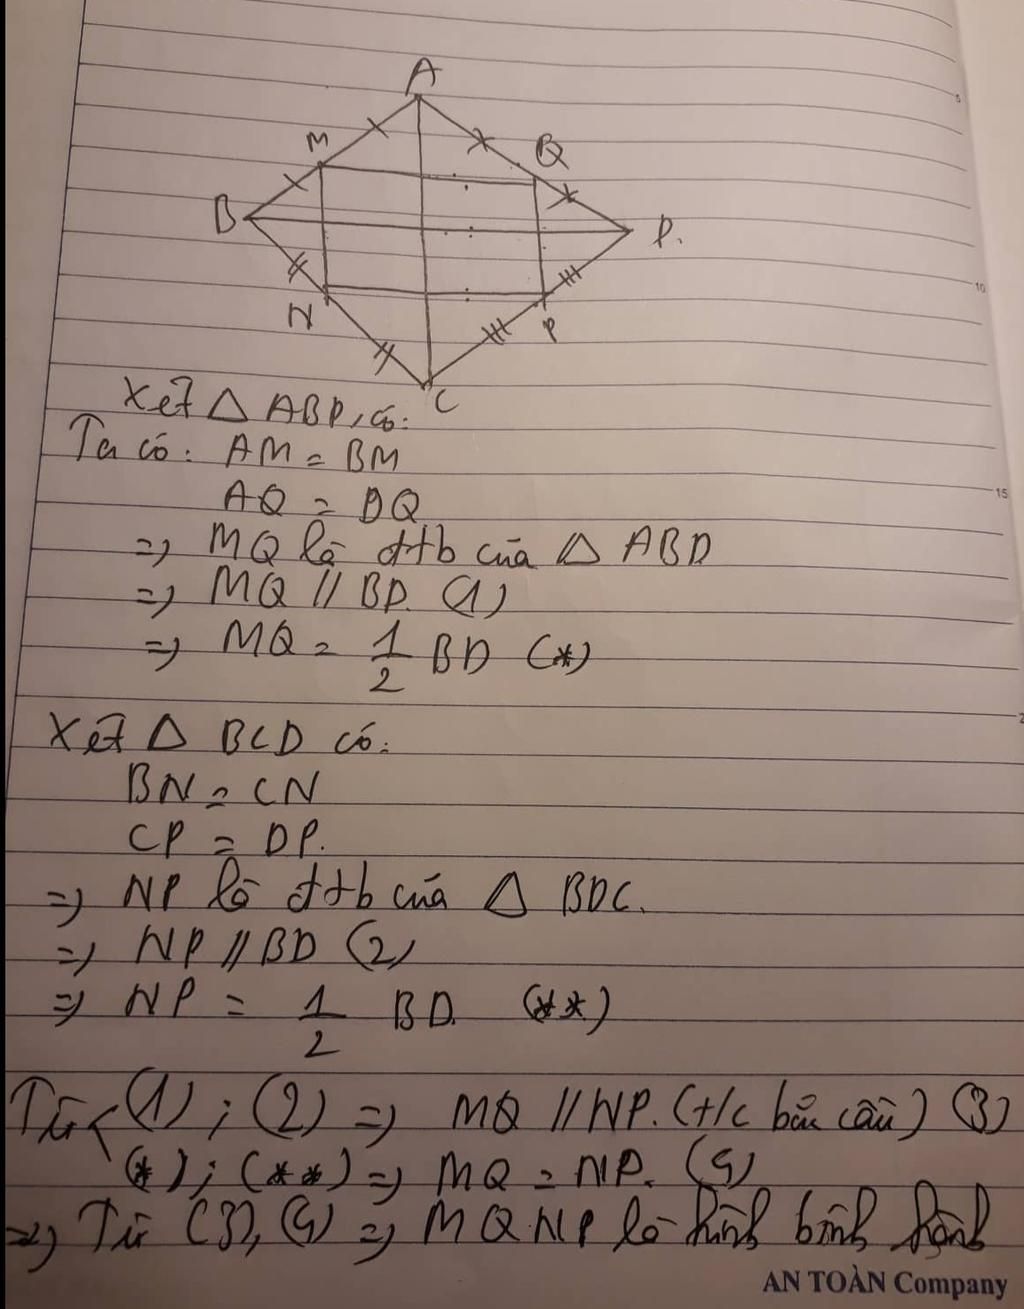 A
M
Q
B
D.
N
P
C
5
10
Xét △ ABD, có:
Ta có: AM = BM
15
AQ = DQ
=> MQ là đtb của △ ABD
=> MQ // BD. (1)
=> MQ = 1/2 BD (*)
Xét △ BCD có:
2
BN = CN
CP = DP.
=> NP là đtb của △ BDC.
=> NP // BD (2)
=> NP = 1/2 BD. (**)
Từ (1) ; (2) => MQ // NP. (t/c bắc cầu) (3)
(*) ; (**) => MQ = NP. (4)
=> Từ (3), (4) => MQNP là hình bình hành
AN TOÀN Company